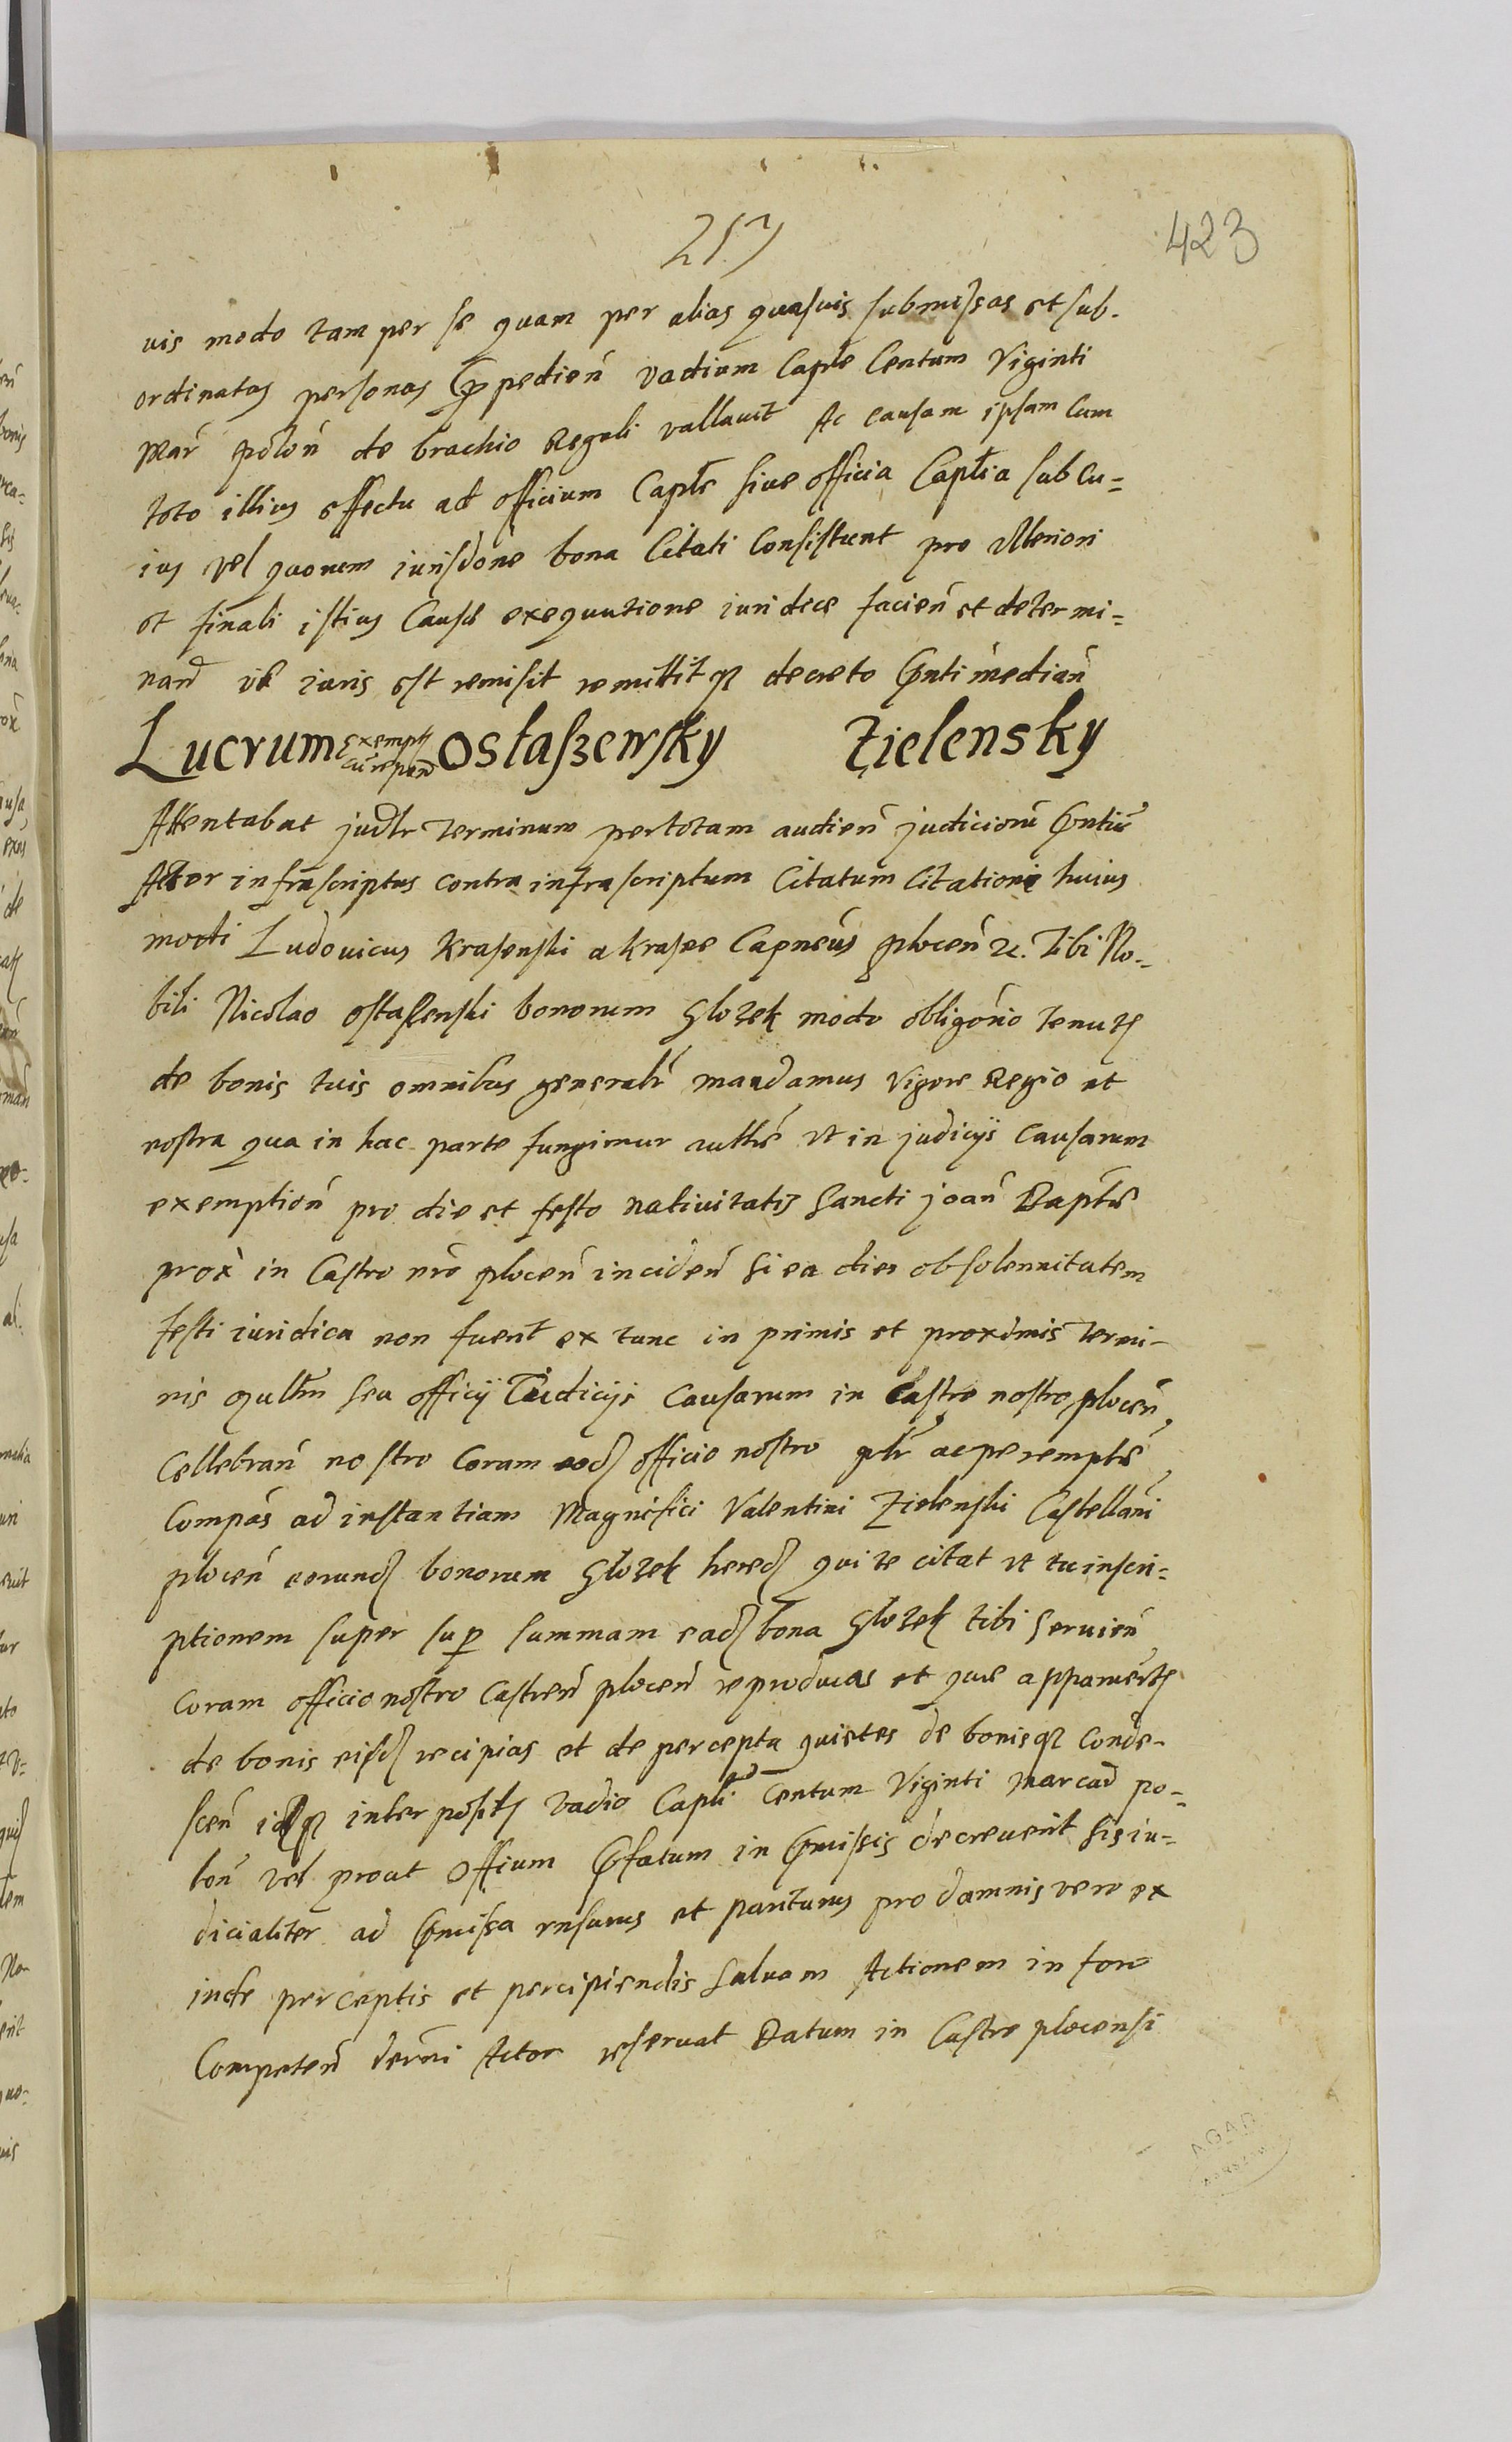 257
423
uis modo tam per se quam per alias quasuis submissas et sub-
ordinatas personas p̄pedień vadium Captle Centum Viginti
Mar̄ polon̄ de brachio Regali vallauit Ac causam ipsam Cum
toto illius effectu ad officium Captle siue officia Captlia sub Cu=
ius vel quorum iurisdone bona Citati Consistunt pro vlteriori
et finali istius Causae exequutione iuridice facień et determi=
nand̄ vt iuris est remisit remittitq; decreto p̄nti mediań
Lucrum Exempt̄ cū repōn Ostaszewsky Zielensky
Attentabat judlr terminum per totam audień judiciorū p̄ntiū
Actor infrascriptus contra infrascriptum Citatum Citatione huius
modi Ludouicus Krasenski a Krasne Capneus plocen̄ etc. Tibi No-
bili Nicolao Ostasenski bonorum Glozek modo obligorio tenut̄
de bonis tuis omnibus generalr̄ mandamus Vigore Regio et
nostra qua in hac parte fungimur autthe vt in judicijs causarum
exemption̄ pro die et festo natiuitatis Sancti joan̄ Baptae
prox̄ in Castro nr̄o plocen̄ inciden̄ si ea dies ob solennitatem
festi iuridica non fuerit ex tunc in primis et proximis termi-
nis qultm̄ seu officij Iudicijs Causarum in Castro nostro plocen̄
Cellebran̄ nostro Coram eod̄ officio nostro pltr̄ ac peremptē
Compás ad instantiam Magnifici Valentini Zielenski Castellani
plocen̄ eorund̄ bonorum Glozek hered̄ qui te citat vt tu inscri=
ptionem super sup̄ summam ead̄ bona Glozek tibi seruień
Coram officio nostro Castren̄ plocen̄ reproducas et quae apparuerit
de bonis eisd̄ recipias et de percepta quietes de bonisq; conde-
scen̄ idq; interposit̄ vadio Captli Centum Viginti marcad̄ po=
lon̄ vel prout Offium p̄fatum in p̄missis decreuerit sis iu=
dicialiter ad p̄missa rnsurus et pariturus pro damnis vero ex
inde perceptis et percipiendis saluam Actionem in foro
Competen̄ Actor reseruat Datum in Castro plocensi
AGAD